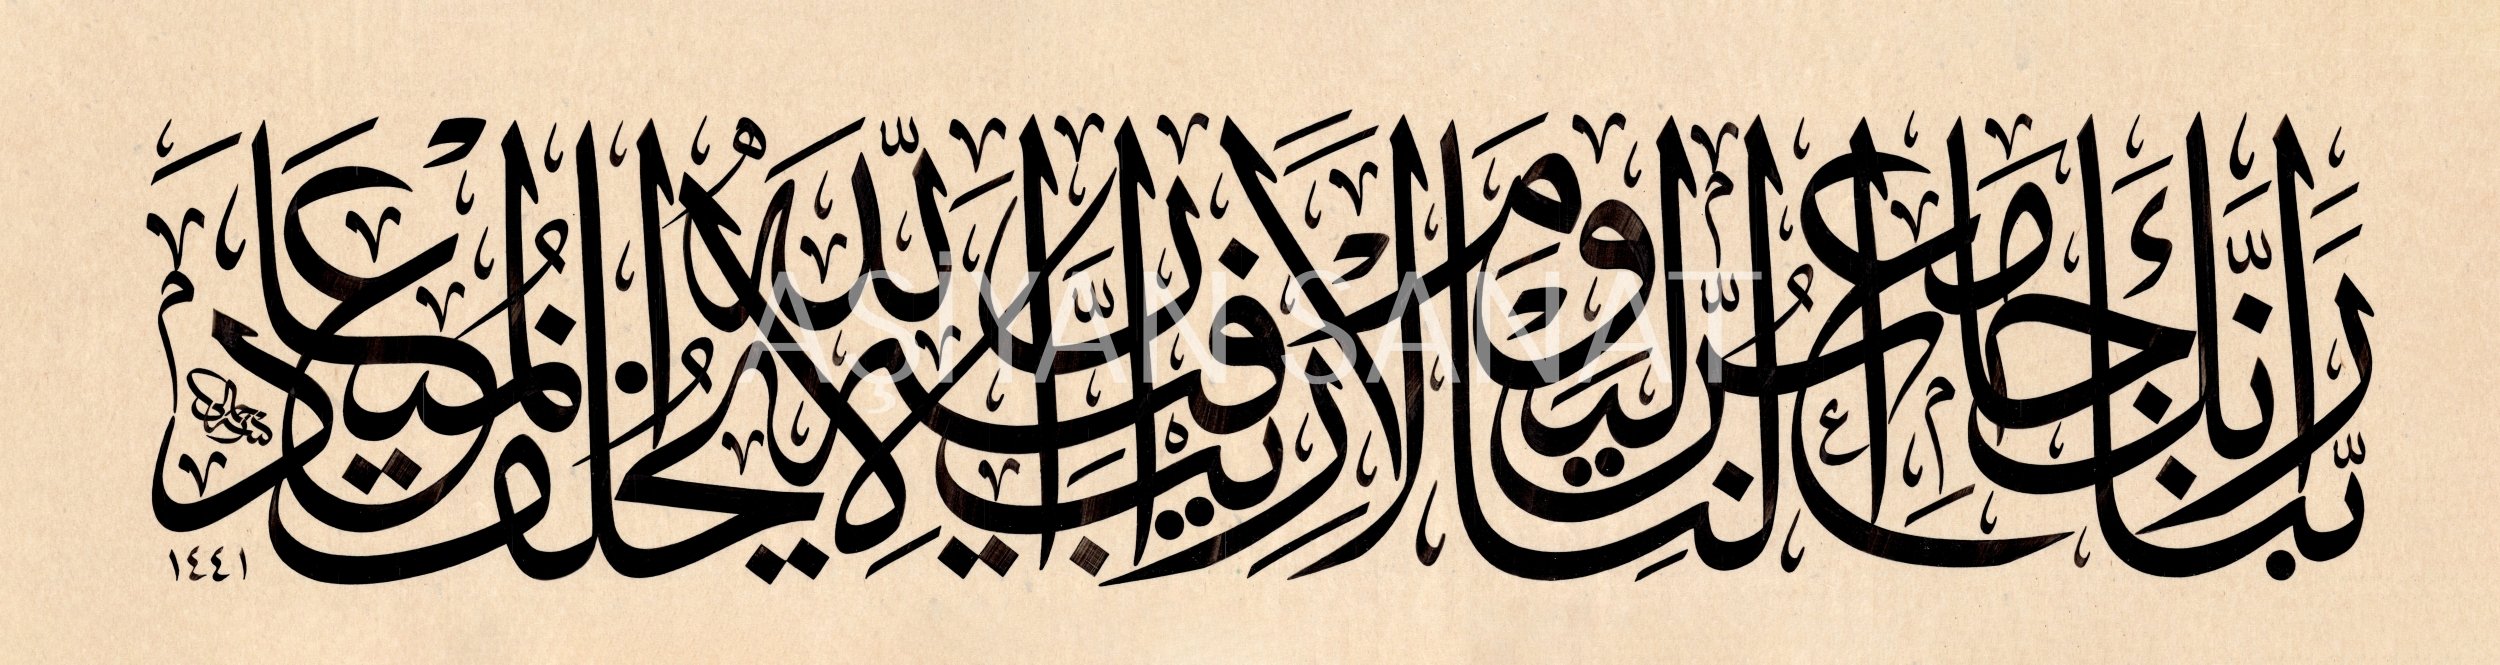 رَبَّنَا إِنَّكَ جَامِعُ النَّاسِ لِيَوْمٍ لَا رَيْبَ فِيهِ إِنَّ اللَّهَ لَا يُخْلِفُ الْمِيعَادَ
AŞİYAN SANAT
١٤٤١